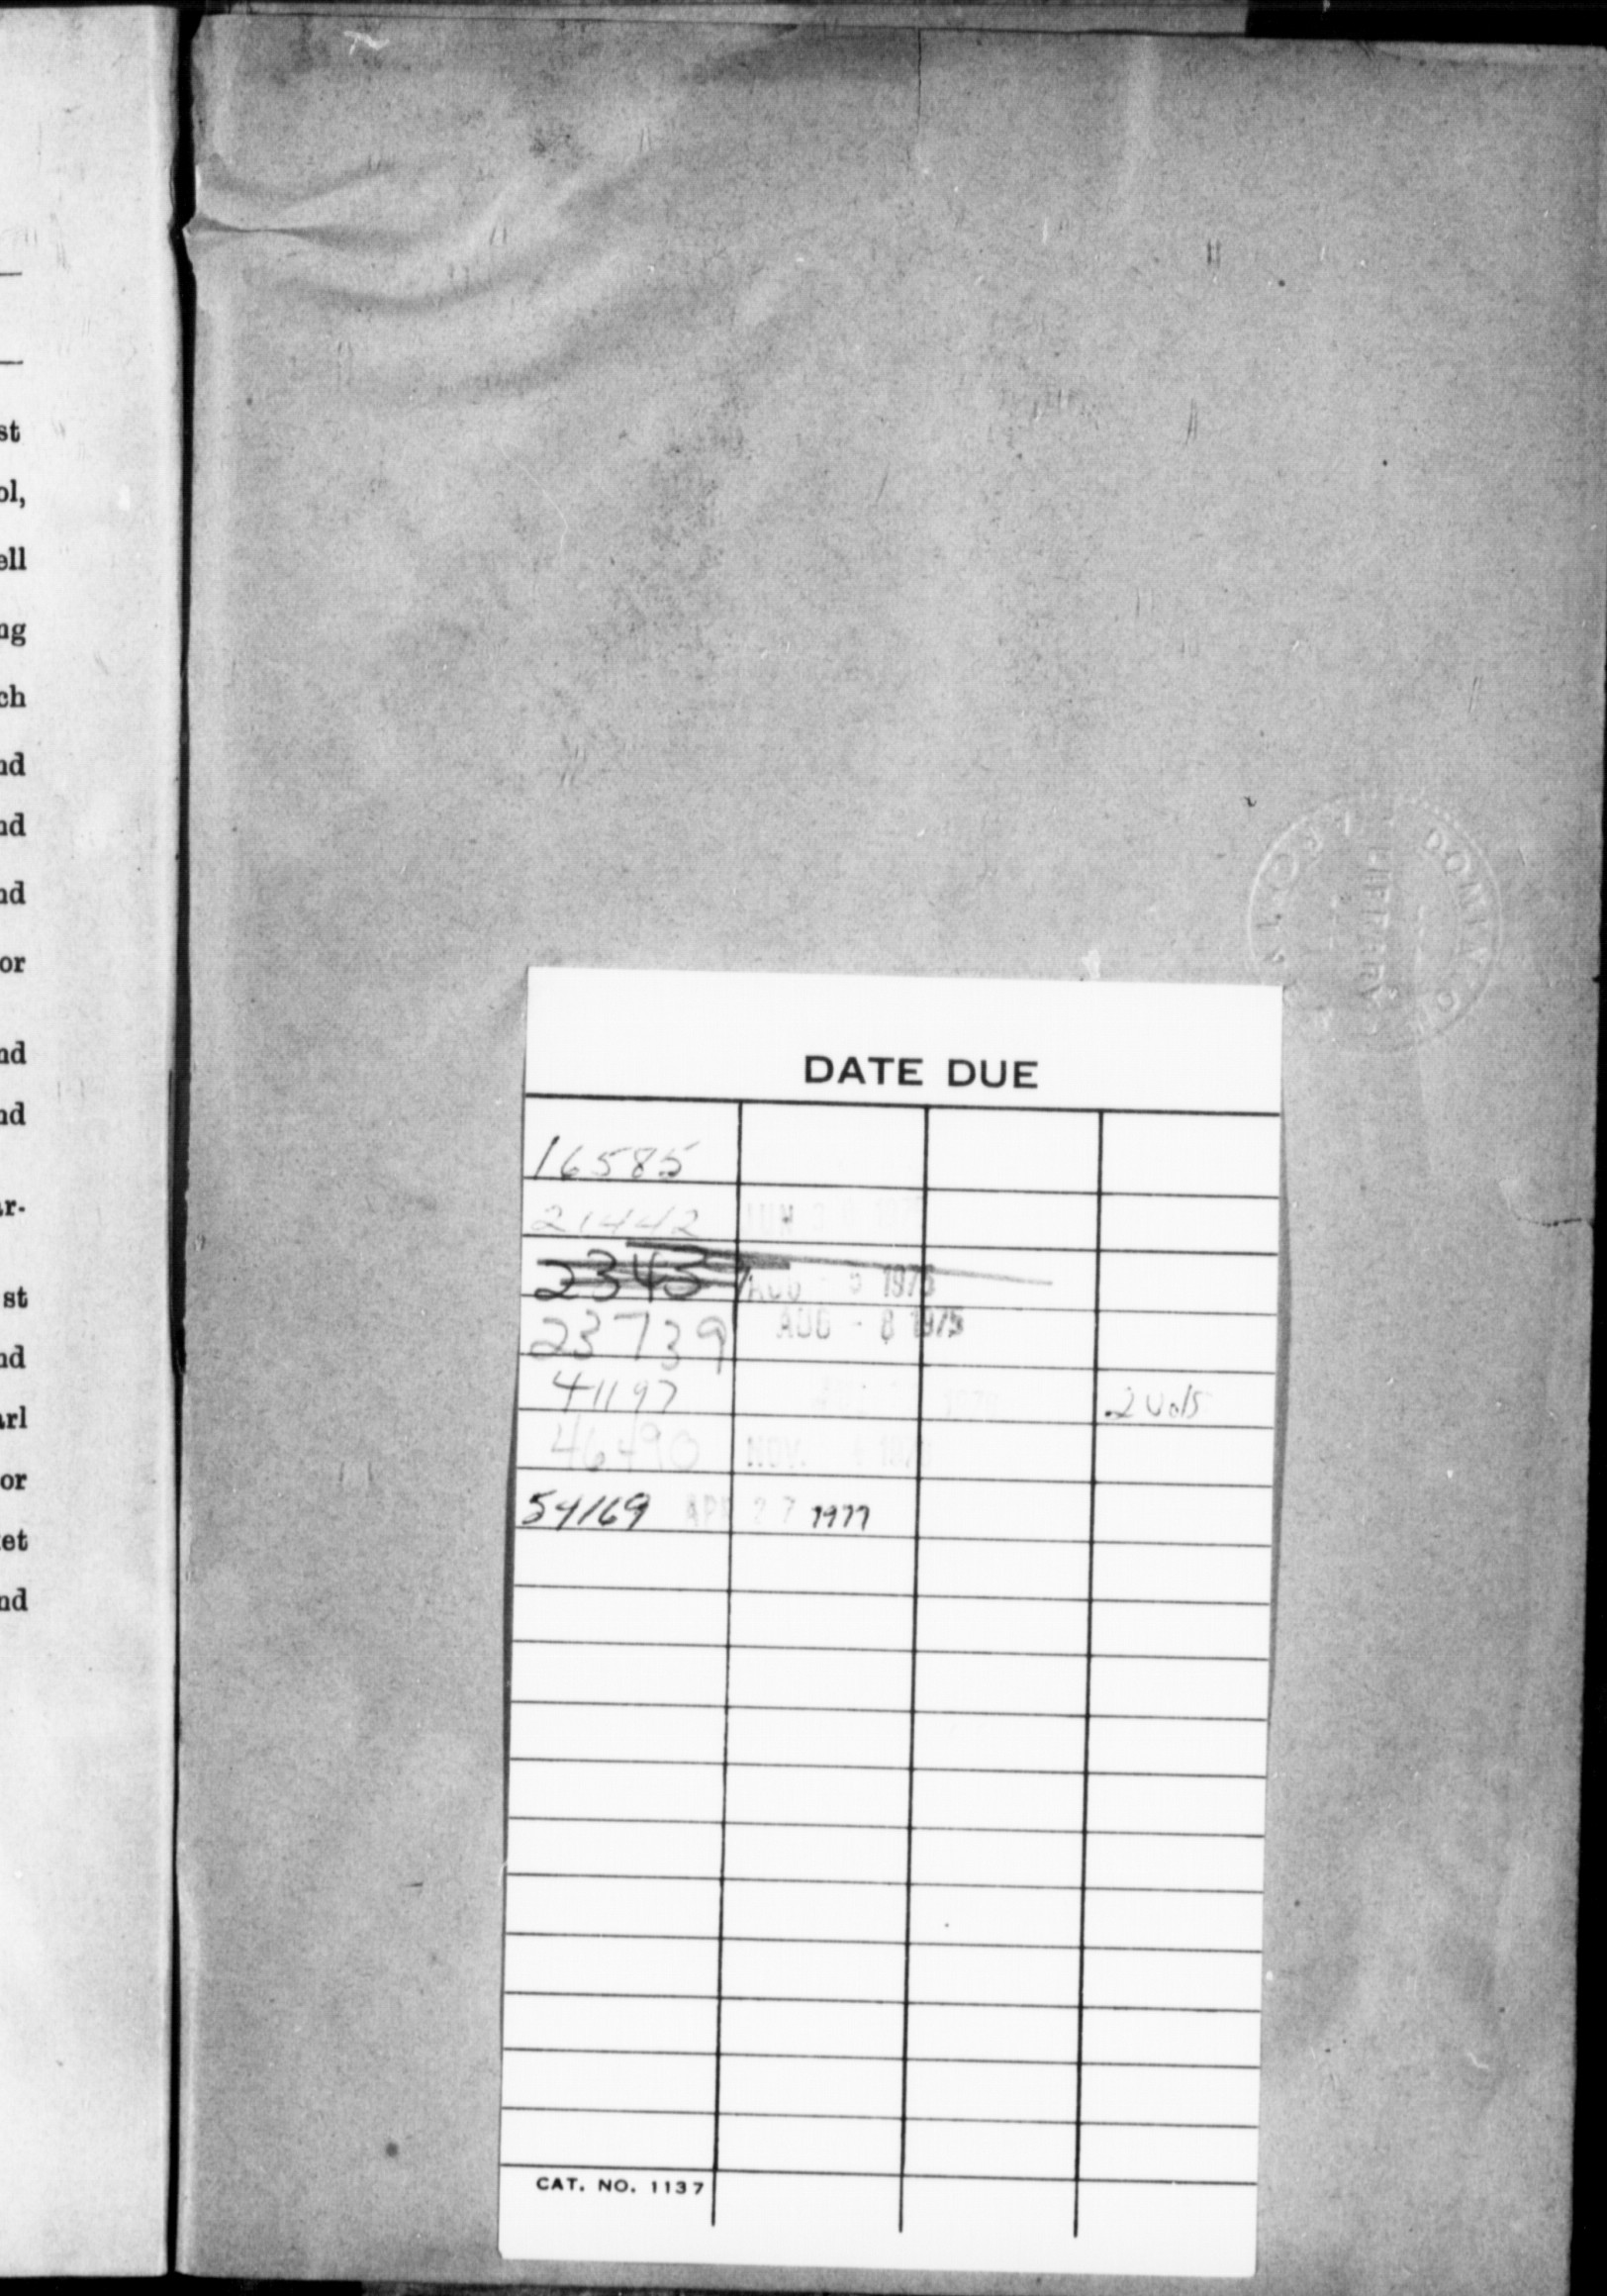 st
ol,
ell
ng
ch
nd
nd
nd
or
nd
nd
ar-
st
nd
arl
or
ket
nd
DOMINION
LIBRARY
DATE DUE
16585
21442 JUN
2343 AUG - 5 1975
23739 AUG - 8 1975
41197 2 Vols
46490 NOV.
54169 APR 27 1977
CAT. NO. 1137